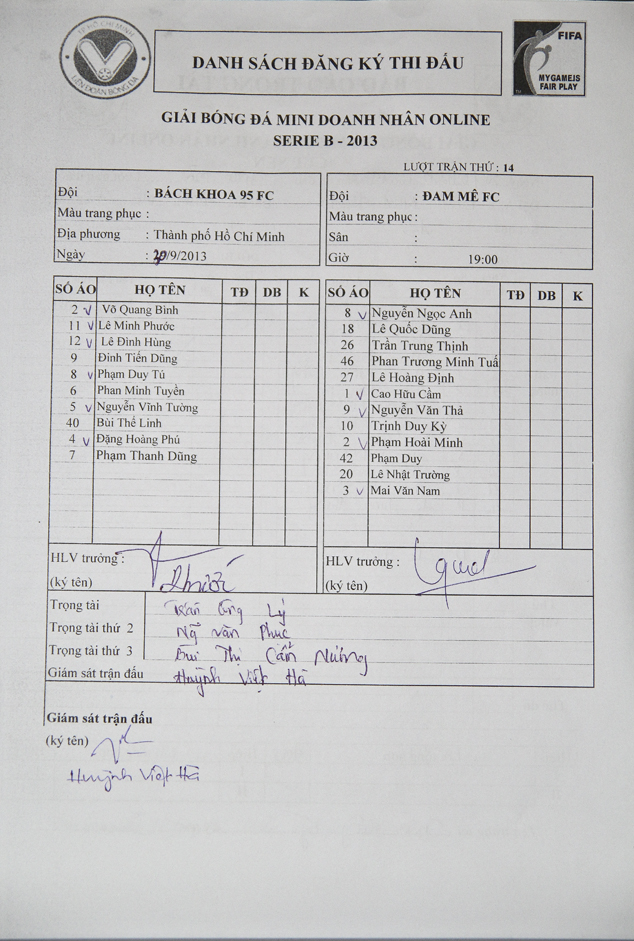 TP. HỒ CHÍ MINH
LIÊN ĐOÀN BÓNG ĐÁ
DANH SÁCH ĐĂNG KÝ THI ĐẤU
FIFA
MY GAME IS
FAIR PLAY
GIẢI BÓNG ĐÁ MINI DOANH NHÂN ONLINE
SERIE B - 2013
LƯỢT TRẬN THỨ : 14
Đội : BÁCH KHOA 95 FC
Màu trang phục :
Địa phương : Thành phố Hồ Chí Minh
Ngày : 20/9/2013
Đội : ĐAM MÊ FC
Màu trang phục :
Sân :
Giờ : 19:00
SỐ ÁO HỌ TÊN TĐ DB K
2 v Võ Quang Bình
11 v Lê Minh Phước
12 v Lê Đình Hùng
9 Đinh Tiến Dũng
8 v Phạm Duy Tú
6 Phan Minh Tuyền
5 v Nguyễn Vĩnh Tường
40 Bùi Thế Linh
4 v Đặng Hoàng Phú
7 Phạm Thanh Dũng
SỐ ÁO HỌ TÊN TĐ DB K
8 v Nguyễn Ngọc Anh
18 Lê Quốc Dũng
26 Trần Trung Thịnh
46 Phan Trương Minh Tuấ
27 Lê Hoàng Định
1 v Cao Hữu Cầm
9 v Nguyễn Văn Thả
10 Trịnh Duy Kỳ
2 v Phạm Hoài Minh
42 Phạm Duy
20 Lê Nhật Trường
3 v Mai Văn Nam
HLV trưởng :
(ký tên) Phước
HLV trưởng :
(ký tên)
Trọng tài Trần Công Lý
Trọng tài thứ 2 Ng Văn Phúc
Trọng tài thứ 3 Bùi Thị Cẩm Nường
Giám sát trận đấu Huỳnh Việt Hà
Giám sát trận đấu
(ký tên)
Huỳnh Việt Hà